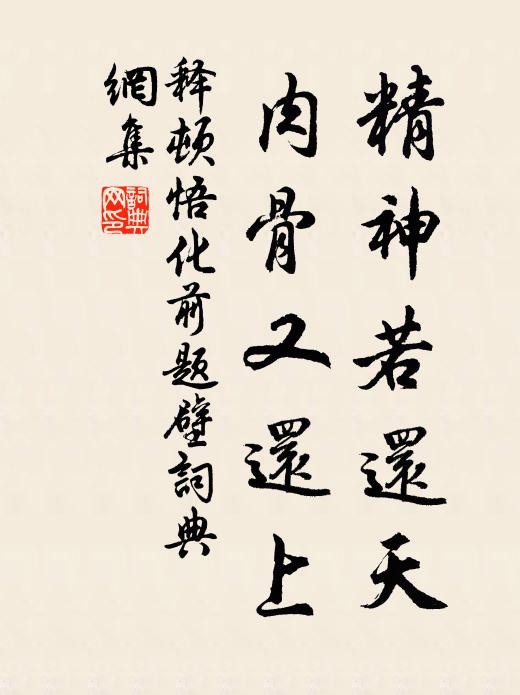 精神若還天
肉骨又還上
释頓悟化前題壁詞典
網集
詞典
网印